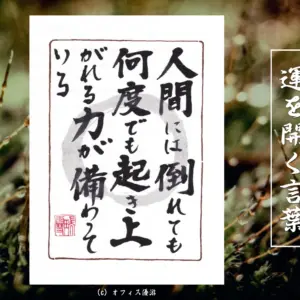 人間には倒れても
何度でも起き上
がれる力が備わって
いる
運を開く言葉
(c) オフィス湯沼